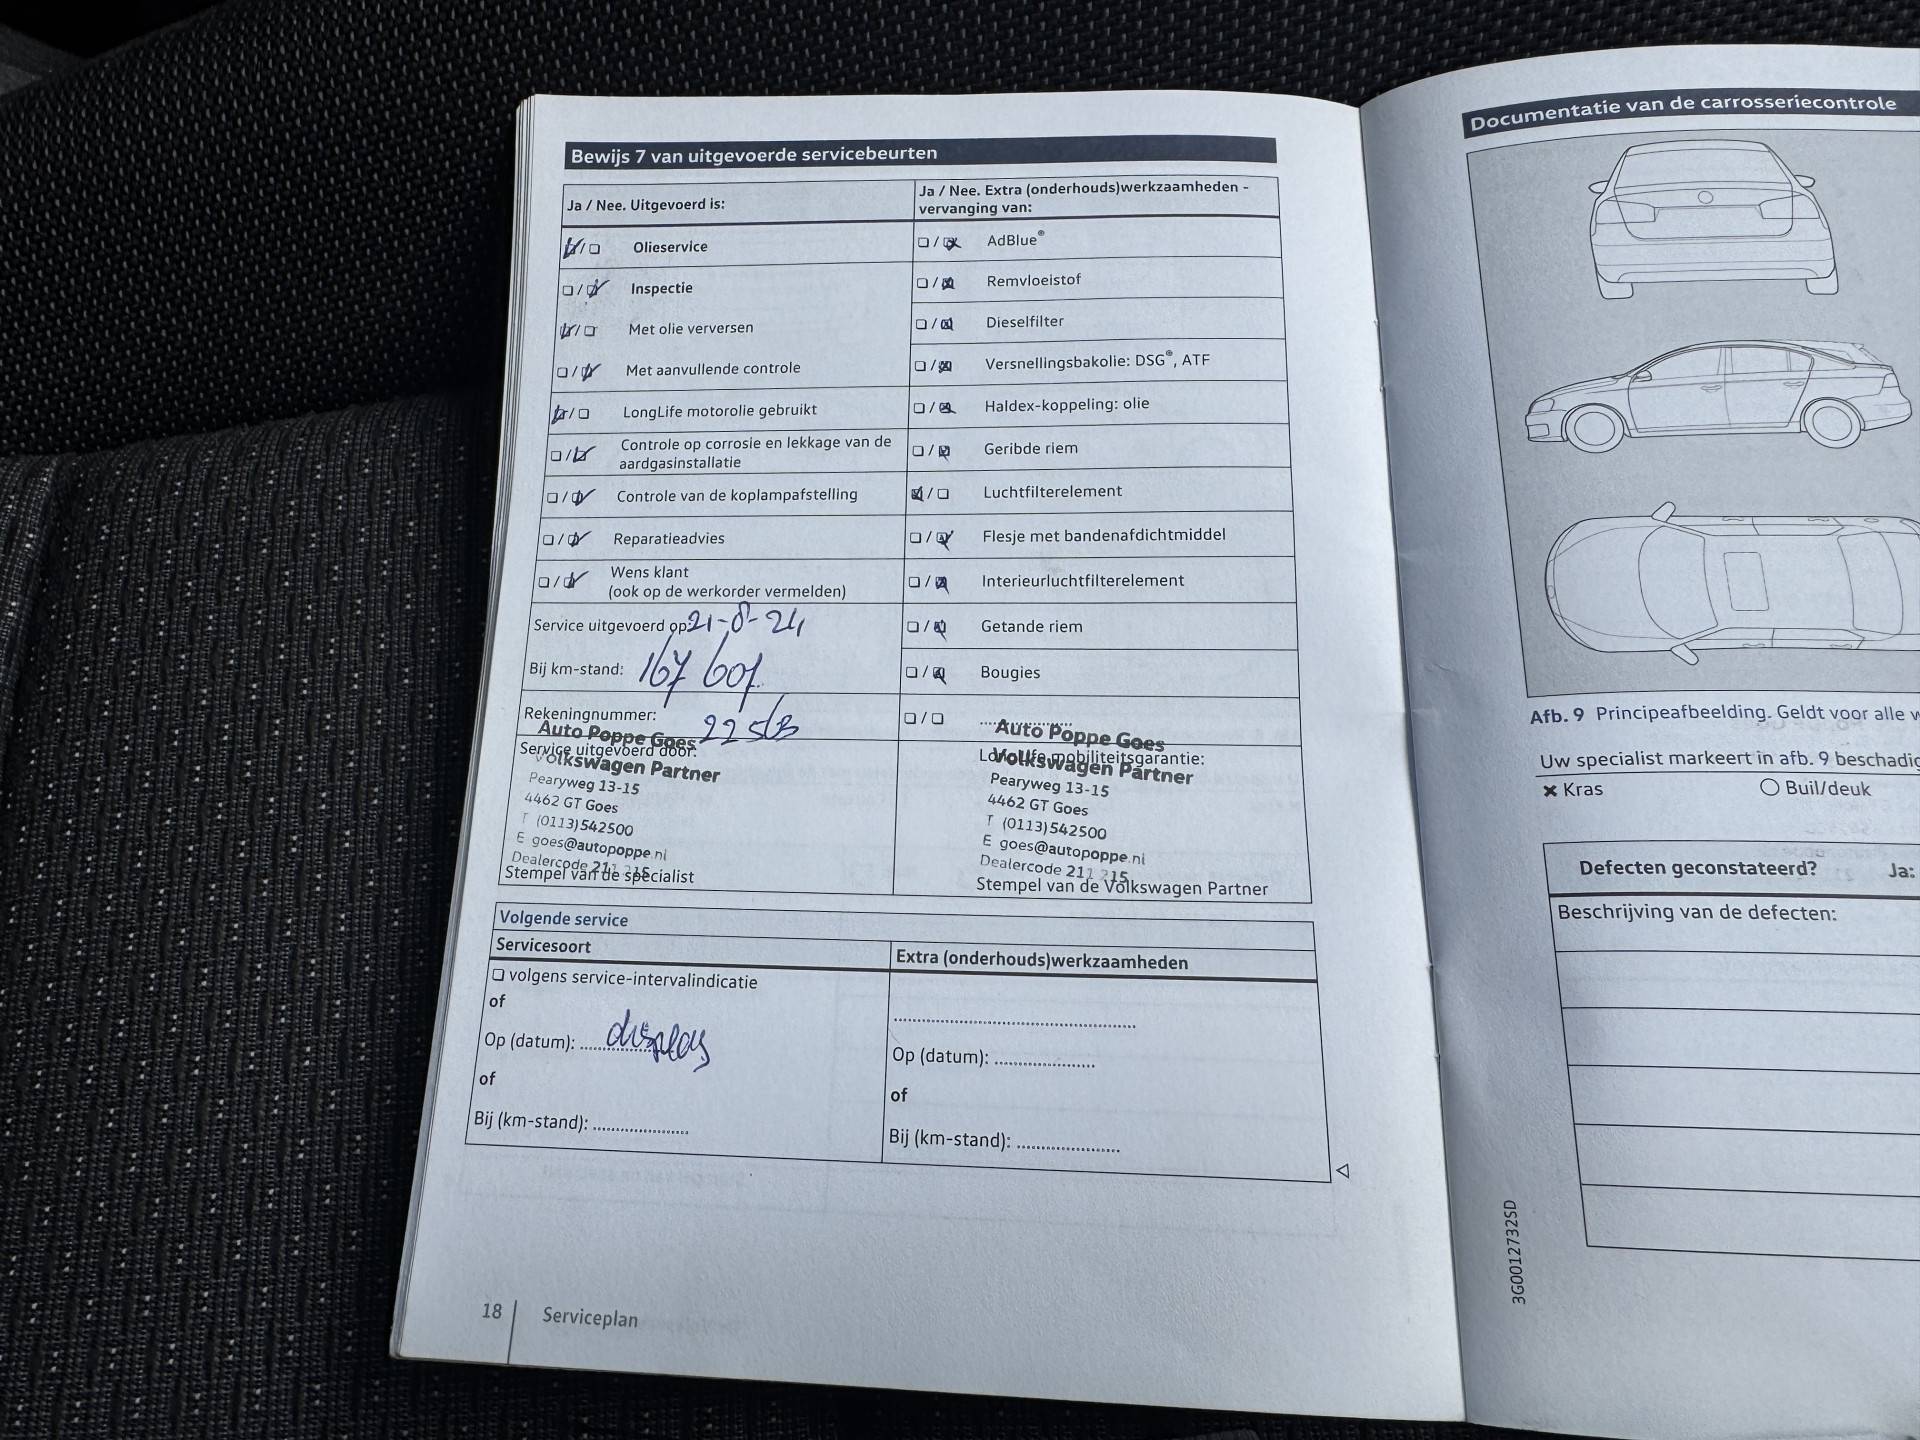 Bewijs 7 van uitgevoerde servicebeurten
Ja / Nee. Uitgevoerd is:
Olieservice
Inspectie
Met olie verversen
Met aanvullende controle
LongLife motorolie gebruikt
Controle op corrosie en lekkage van de
aardgasinstallatie
Controle van de koplampafstelling
Reparatieadvies
Wens klant
(ook op de werkorder vermelden)
Service uitgevoerd op: 21-8-24
Bij km-stand: 167 601
Rekeningnummer:
Service uitgevoerd door:
Auto Poppe Goes
Volkswagen Partner
Pearyweg 13-15
4462 GT Goes
T (0113)542500
E goes@autopoppe.nl
Dealercode 211 215
Stempel van de specialist
Ja / Nee. Extra (onderhouds)werkzaamheden -
vervanging van:
AdBlue®
Remvloeistof
Dieselfilter
Versnellingsbakolie: DSG®, ATF
Haldex-koppeling: olie
Geribde riem
Luchtfilterelement
Flesje met bandenafdichtmiddel
Interieurluchtfilterelement
Getande riem
Bougies
LongLife mobiliteitsgarantie:
Auto Poppe Goes
Volkswagen Partner
Pearyweg 13-15
4462 GT Goes
T (0113)542500
E goes@autopoppe.nl
Dealercode 211 215
Stempel van de Volkswagen Partner
Volgende service
Servicesoort
volgens service-intervalindicatie
of
Op (datum): display
of
Bij (km-stand):
Extra (onderhouds)werkzaamheden
Op (datum):
of
Bij (km-stand):
18 Serviceplan
Documentatie van de carrosseriecontrole
Afb. 9 Principeafbeelding. Geldt voor alle
Uw specialist markeert in afb. 9
Kras
Buil/deuk
Defecten geconstateerd? Ja:
Beschrijving van de defecten:
3G0012732SD